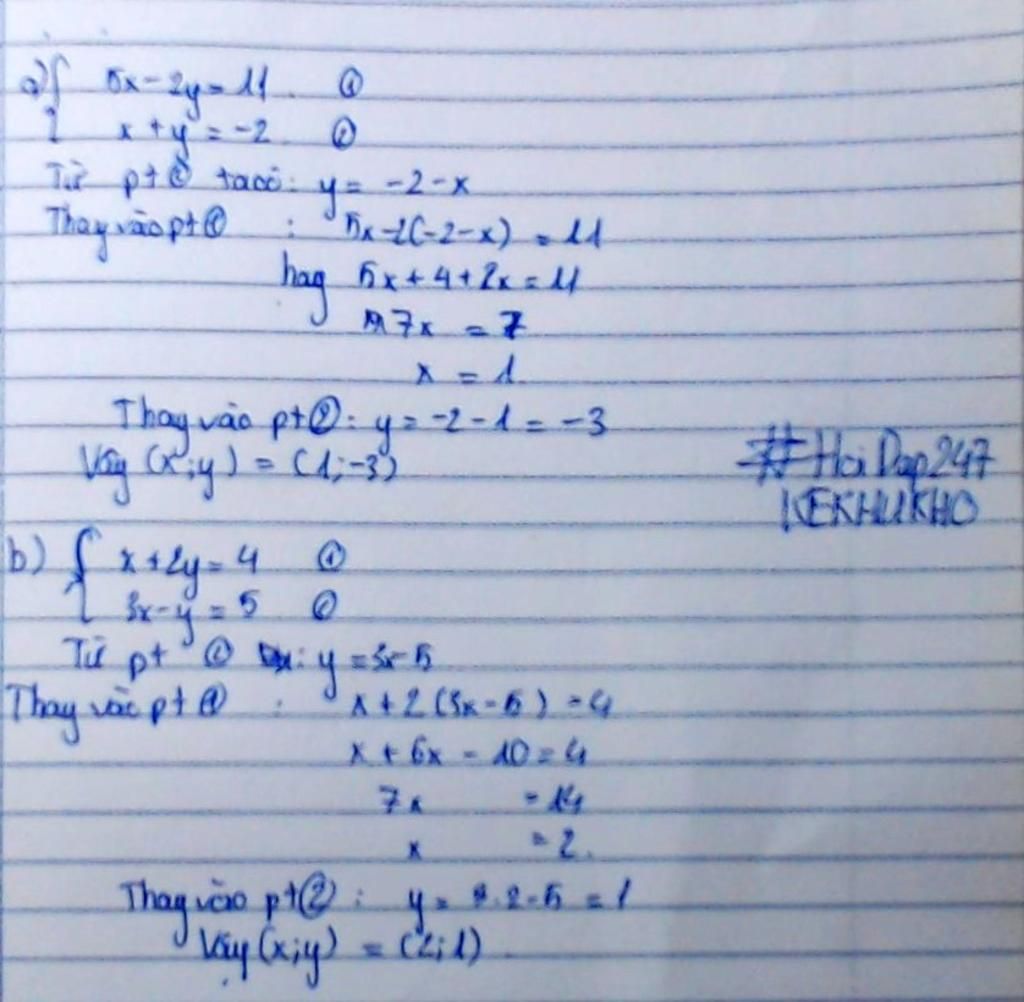 a) { 5x - 2y = 11 ①
x + y = -2 ②
Từ pt ② ta có: y = -2 - x
Thay vào pt ① : 5x - 2(-2 - x) = 11
hay 5x + 4 + 2x = 11
7x = 7
x = 1
Thay vào pt ②: y = -2 - 1 = -3
Vậy (x;y) = (1;-3)
#HoiDap247
KEKHUKHO
b) { x + 2y = 4 ①
3x - y = 5 ②
Từ pt ② : y = 3x - 5
Thay vào pt ① : x + 2(3x - 5) = 4
x + 6x - 10 = 4
7x = 14
x = 2.
Thay vào pt ② : y = 3.2 - 5 = 1
Vậy (x;y) = (2;1)